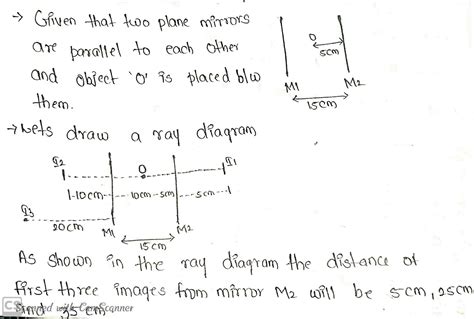 → Given that two plane mirrors
are parallel to each other
and object 'O' is placed b/w
them.
O
5cm
M1
M2
15cm
→ Lets draw a ray diagram
I2
O
I1
1-10cm--
10cm--5cm
--5cm--1
I3
20cm
M1
M2
15cm
As shown in the ray diagram the distance of
first three images from mirror M2 will be 5cm, 25cm
and 35cm
CS Scanned with CamScanner